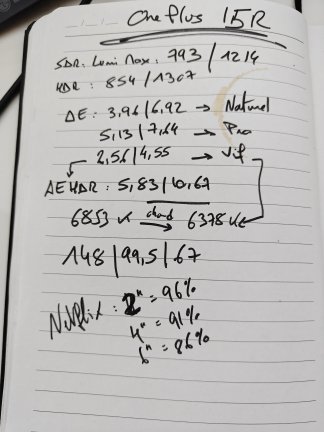 OnePlus 15R
SDR: Lumi max: 793 / 1214
HDR : 854 / 1307
ΔE : 3,96 / 6,92 → Naturel
5,13 / 7,64 → Pro
2,56 / 4,55 → Vif
ΔE HDR : 5,83 / 10,67
6853 K chaud → 6378 K
148 | 99,5 | 67
Netflix : 2h = 96%
4h = 91%
6h = 86%